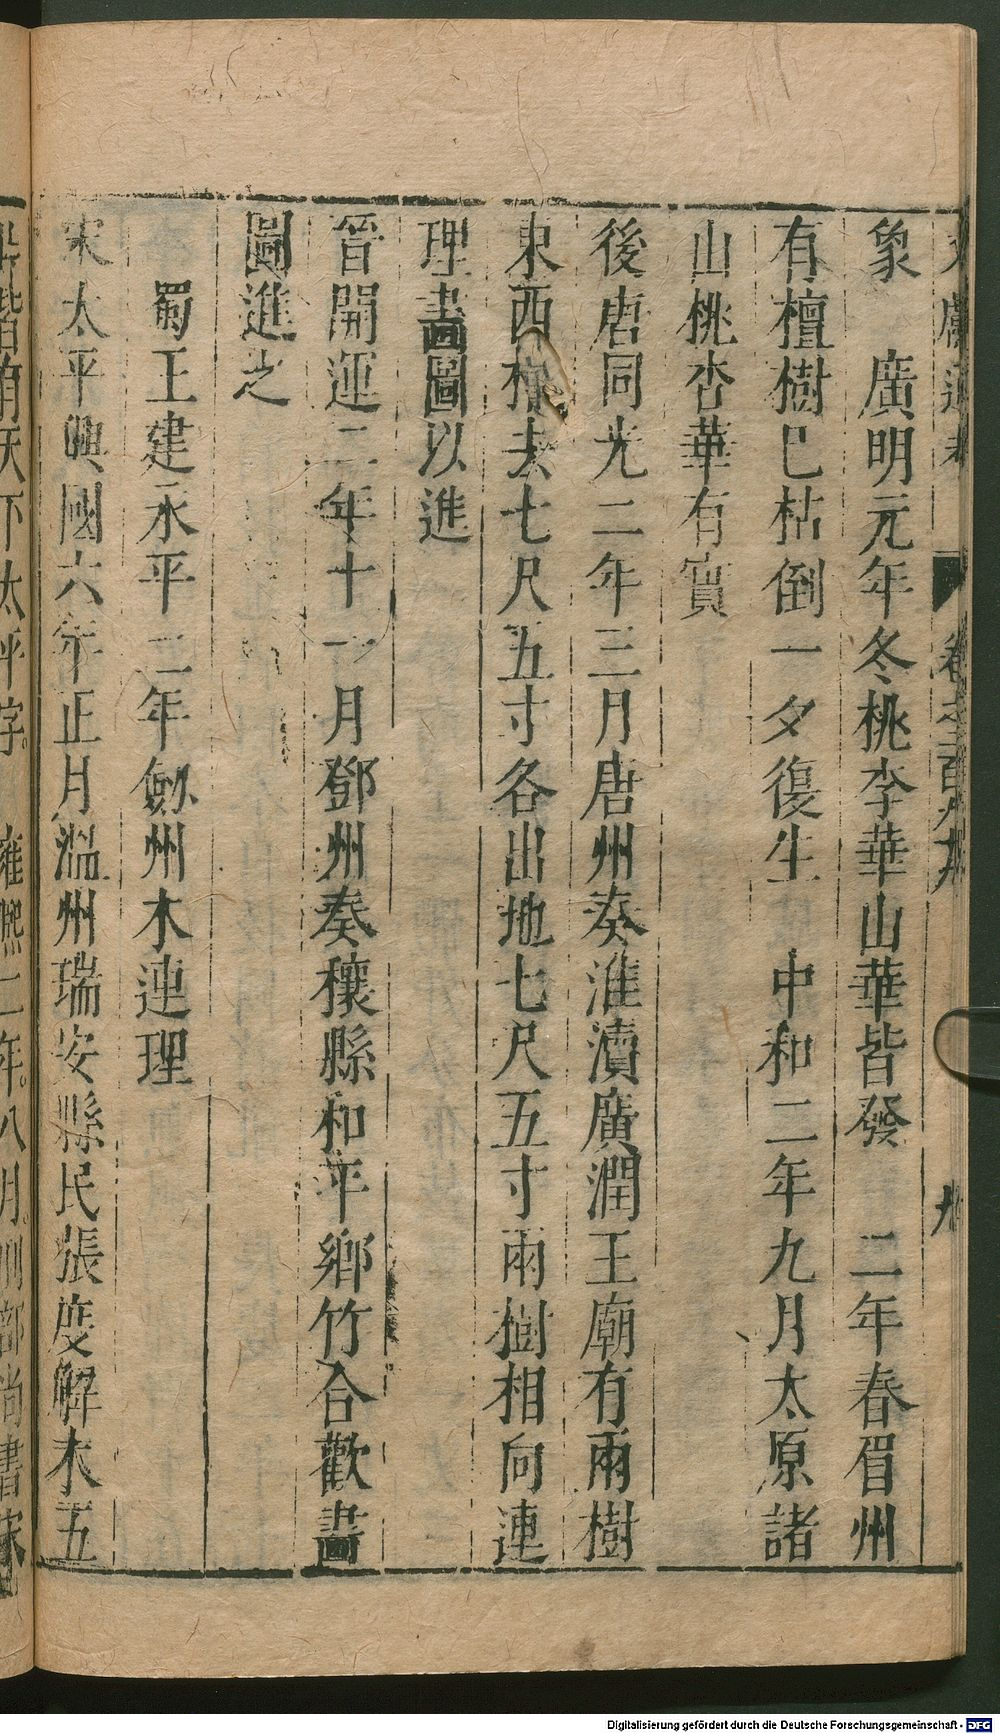 象　廣明元年冬桃李華山華皆發　二年春眉州
有檀樹巳枯倒一夕復生　中和二年九月太原諸
山桃杏華有實
後唐同光二年三月唐州奏淮瀆廣潤王廟有兩樹
東西相去七尺五寸各出地七尺五寸兩樹相向連
理畫圖以進
晉開運二年十一月鄧州奏穰縣和平鄉竹合歡畫
圖進之
　蜀王建永平二年劔州木連理
宋太平興國六年正月溫州瑞安縣民張度解木五
片皆有天下太平字　雍熙二年八月刑部尚書宋
卷之三百九十九
九
Digitalisierung gefördert durch die Deutsche Forschungsgemeinschaft - DFG